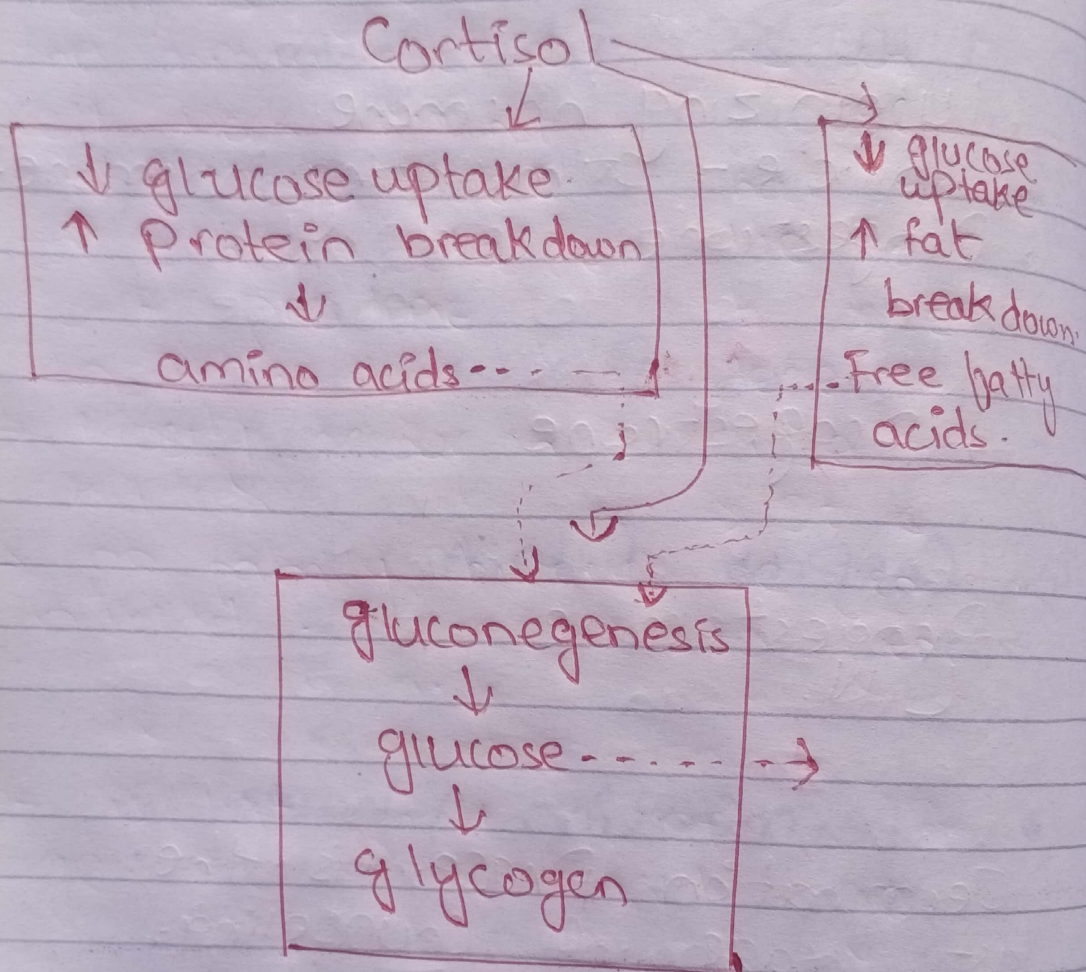 Cortisol
↓ glucose uptake
↑ protein breakdown
↓
amino acids
↓ glucose
uptake
↑ fat
breakdown.
Free fatty
acids.
gluconegenesis
↓
glucose
↓
glycogen